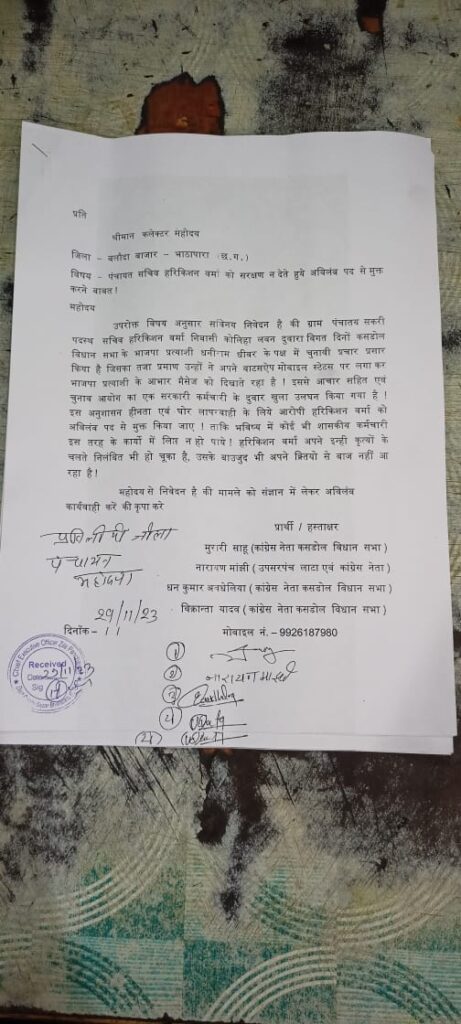 प्रति
श्रीमान कलेक्टर महोदय
जिला - बलौदा बाजार - भाठापारा (छ.ग.)
विषय - पंचायत सचिव हरिकिशन वर्मा को सरक्षण न देते हुये अविलंब पद से मुक्त
करने बाबत!
महोदय
उपरोक्त विषय अनुसार सविनय निवेदन है की ग्राम पंचातय सकरी
पदस्थ सचिव हरिकिशन वर्मा निवासी कोलिहा लवन दुवारा विगत दिनों कसडोल
विधान सभा के भाजपा प्रत्याशी धनीराम धीवर के पक्ष में चुनावी प्रचार प्रसार
किया है जिसका तजा प्रमाण उन्हों ने अपने वाटसऐप मोबाइल स्टेटस पर लगा कर
भाजपा प्रत्याशी के आभार मैसेज को दिखाते रहा है ! इससे आचार सहित एवं
चुनाव आयोग का एक सरकारी कर्मचारी के दुवार खुला उलघन किया गया है !
इस अनुशासन हीनता एवं घोर लापरवाही के लिये आरोपी हरिकिशन वर्मा को
अविलंब पद से मुक्त किया जाए ! ताकि भविष्य में कोई भी शासकीय कर्मचारी
इस तरह के कार्यो में लिप्त न हो पाये ! हरिकिशन वर्मा अपने इन्ही कृत्यों के
चलते निलंबित भी हो चूका है, उसके बाउजुद भी अपने क्रितियो से बाज नहीं आ
रहा है !
महोदय से निवेदन है की मामले को संज्ञान में लेकर अविलंब
कार्यवाही करें की कृपा करे
प्रार्थी / हस्ताक्षर
मुरारी साहू (कांग्रेस नेता कसडोल विधान सभा)
नारायण मांझी (उपसरपंच लाटा एवं कांग्रेस नेता)
धन कुमार अवधेलिया (कांग्रेस नेता कसडोल विधान सभा)
विक्रान्ता यदव (कांग्रेस नेता कसडोल विधान सभा)
प्रतिलीपी जीला
पंचायत
महोदय
29/11/23
दिनाँक-
मोबाइल नं. - 9926187980
Chief Executive Officer Zila Panchayat
Received
Sig
①
②
③
④